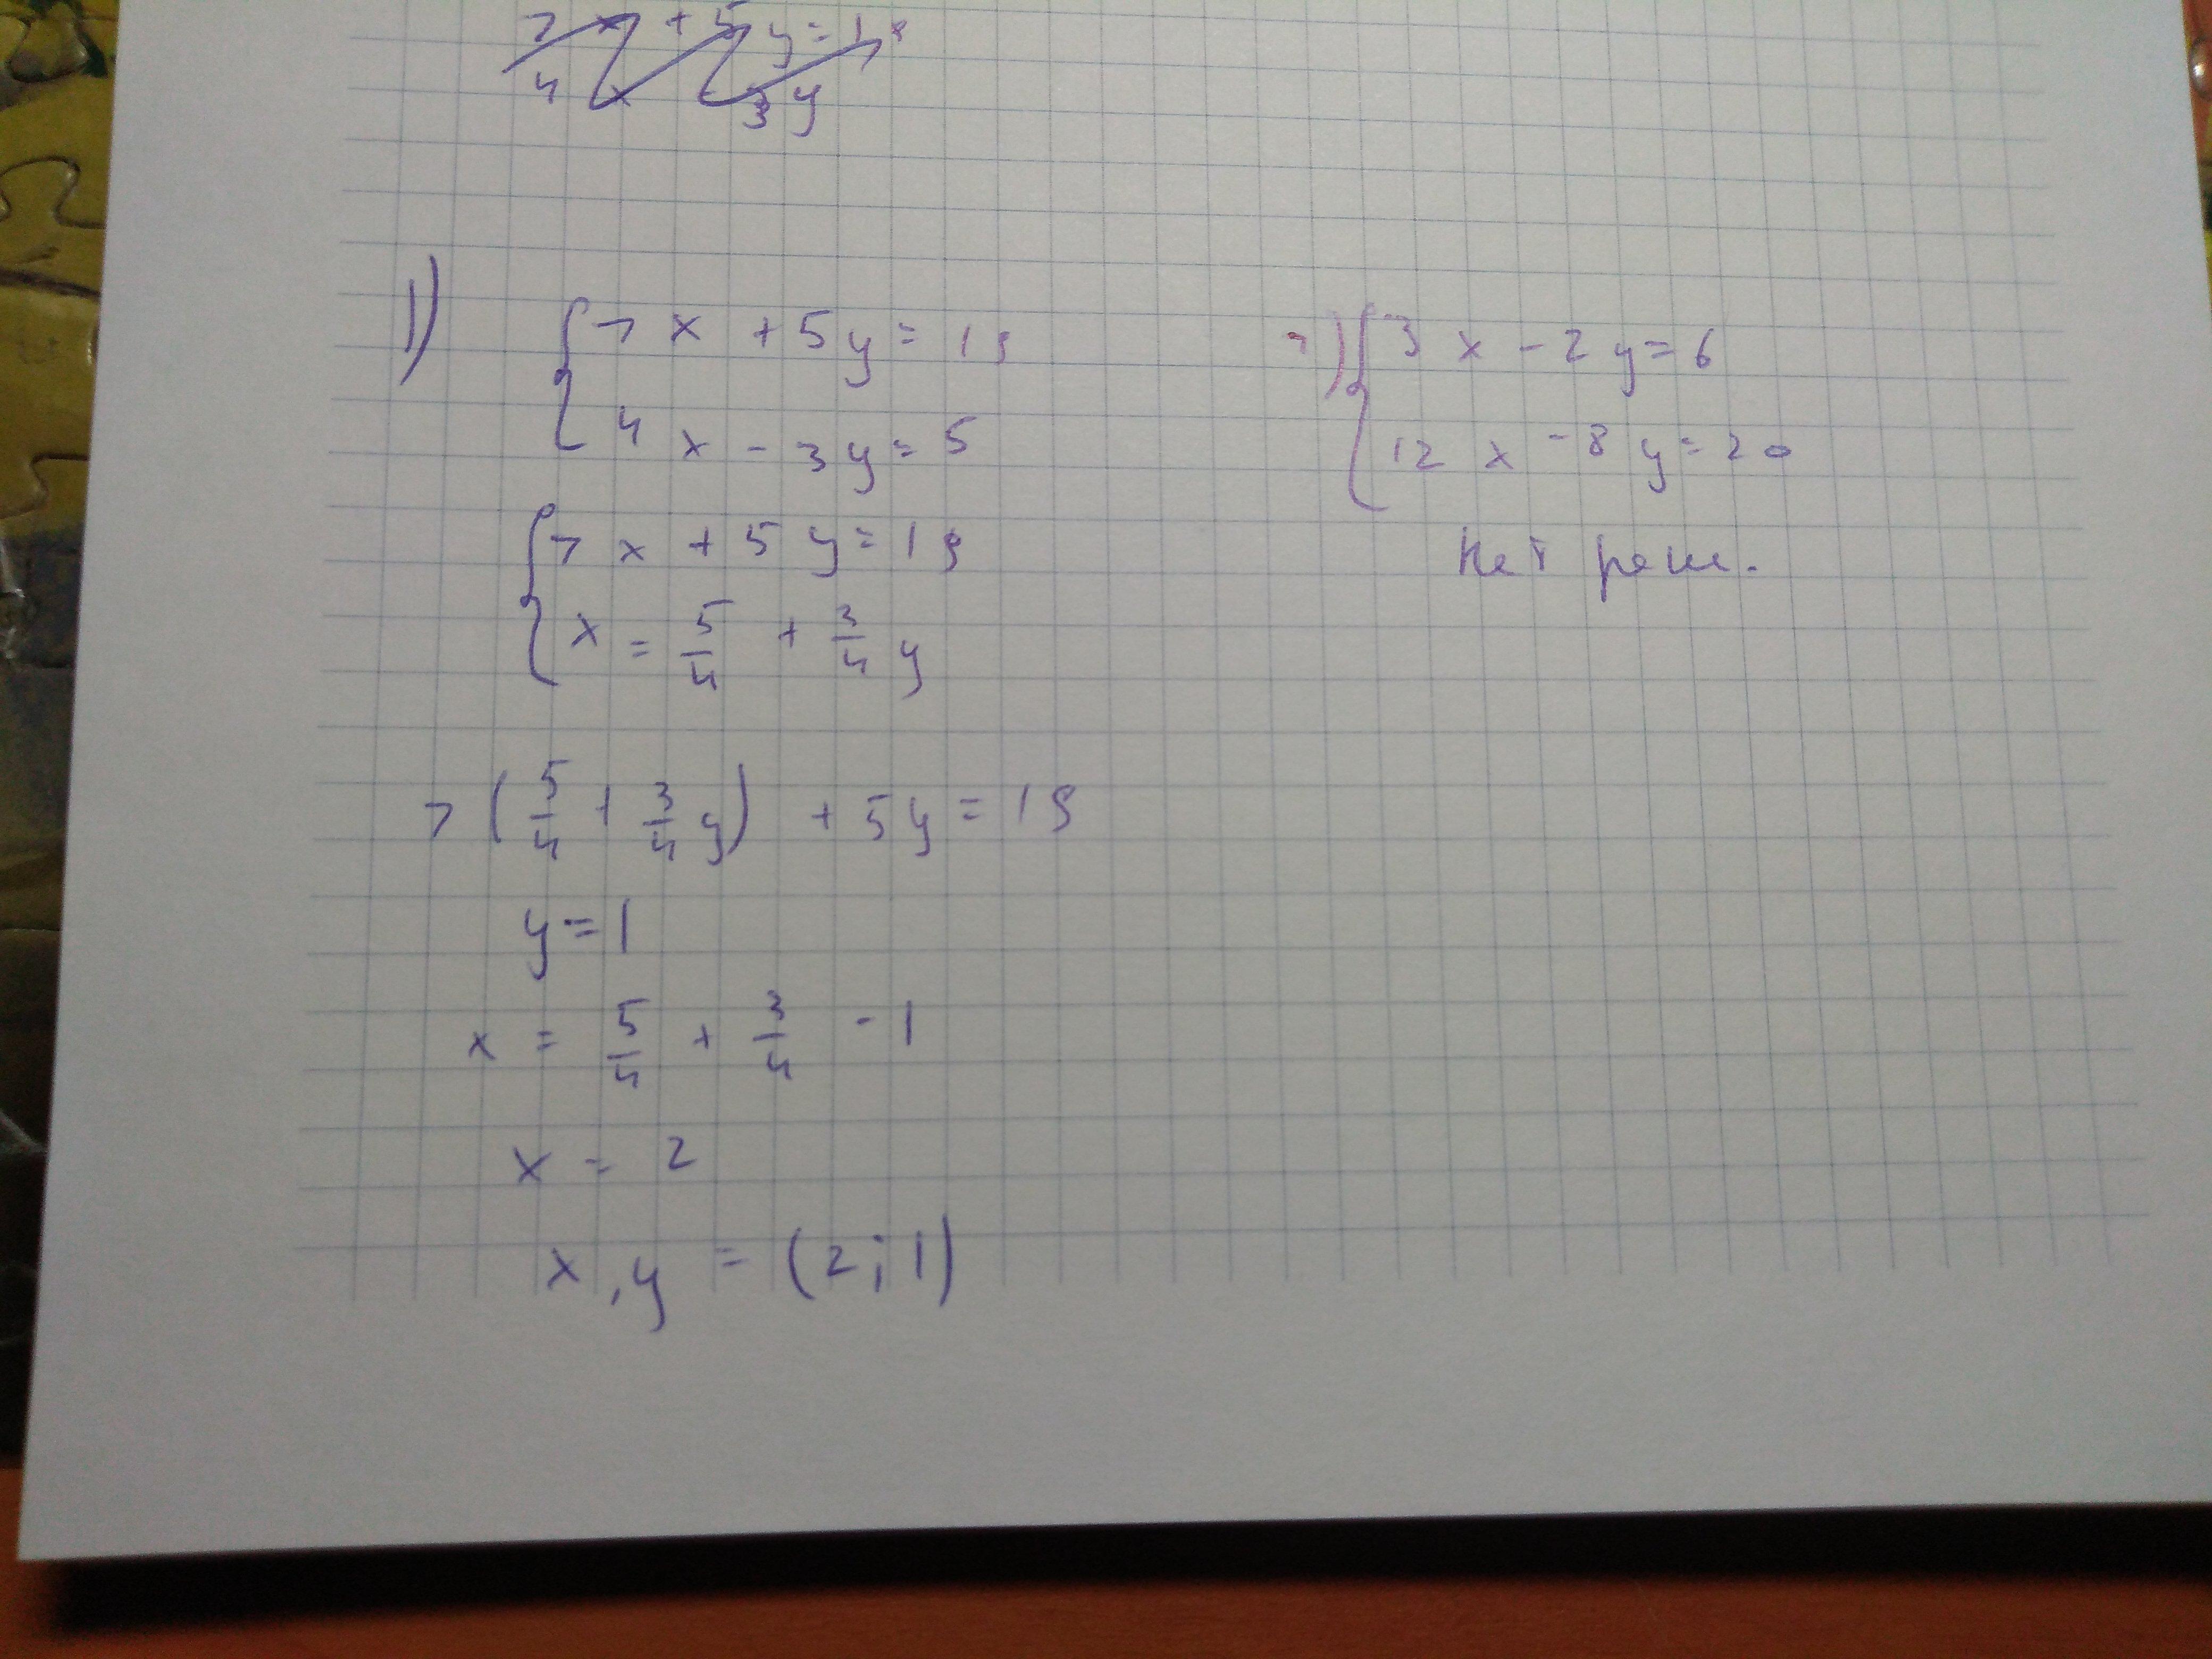 7x + 5y = 19
4x - 3y
1)
7x + 5y = 19
4x - 3y = 5
7x + 5y = 19
x = 5/4 + 3/4 y
7 (5/4 + 3/4 y) + 5y = 19
y = 1
x = 5/4 + 3/4 - 1
x = 2
x, y = (2; 1)
3x - 2y = 6
12x - 8y = 20
Нет реш.